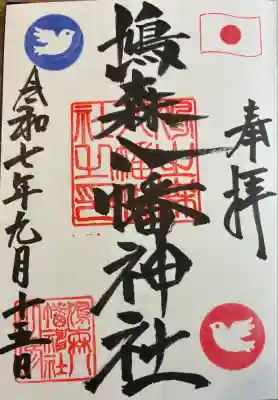 奉拝
鳩森八幡神社
令和七年九月十五日